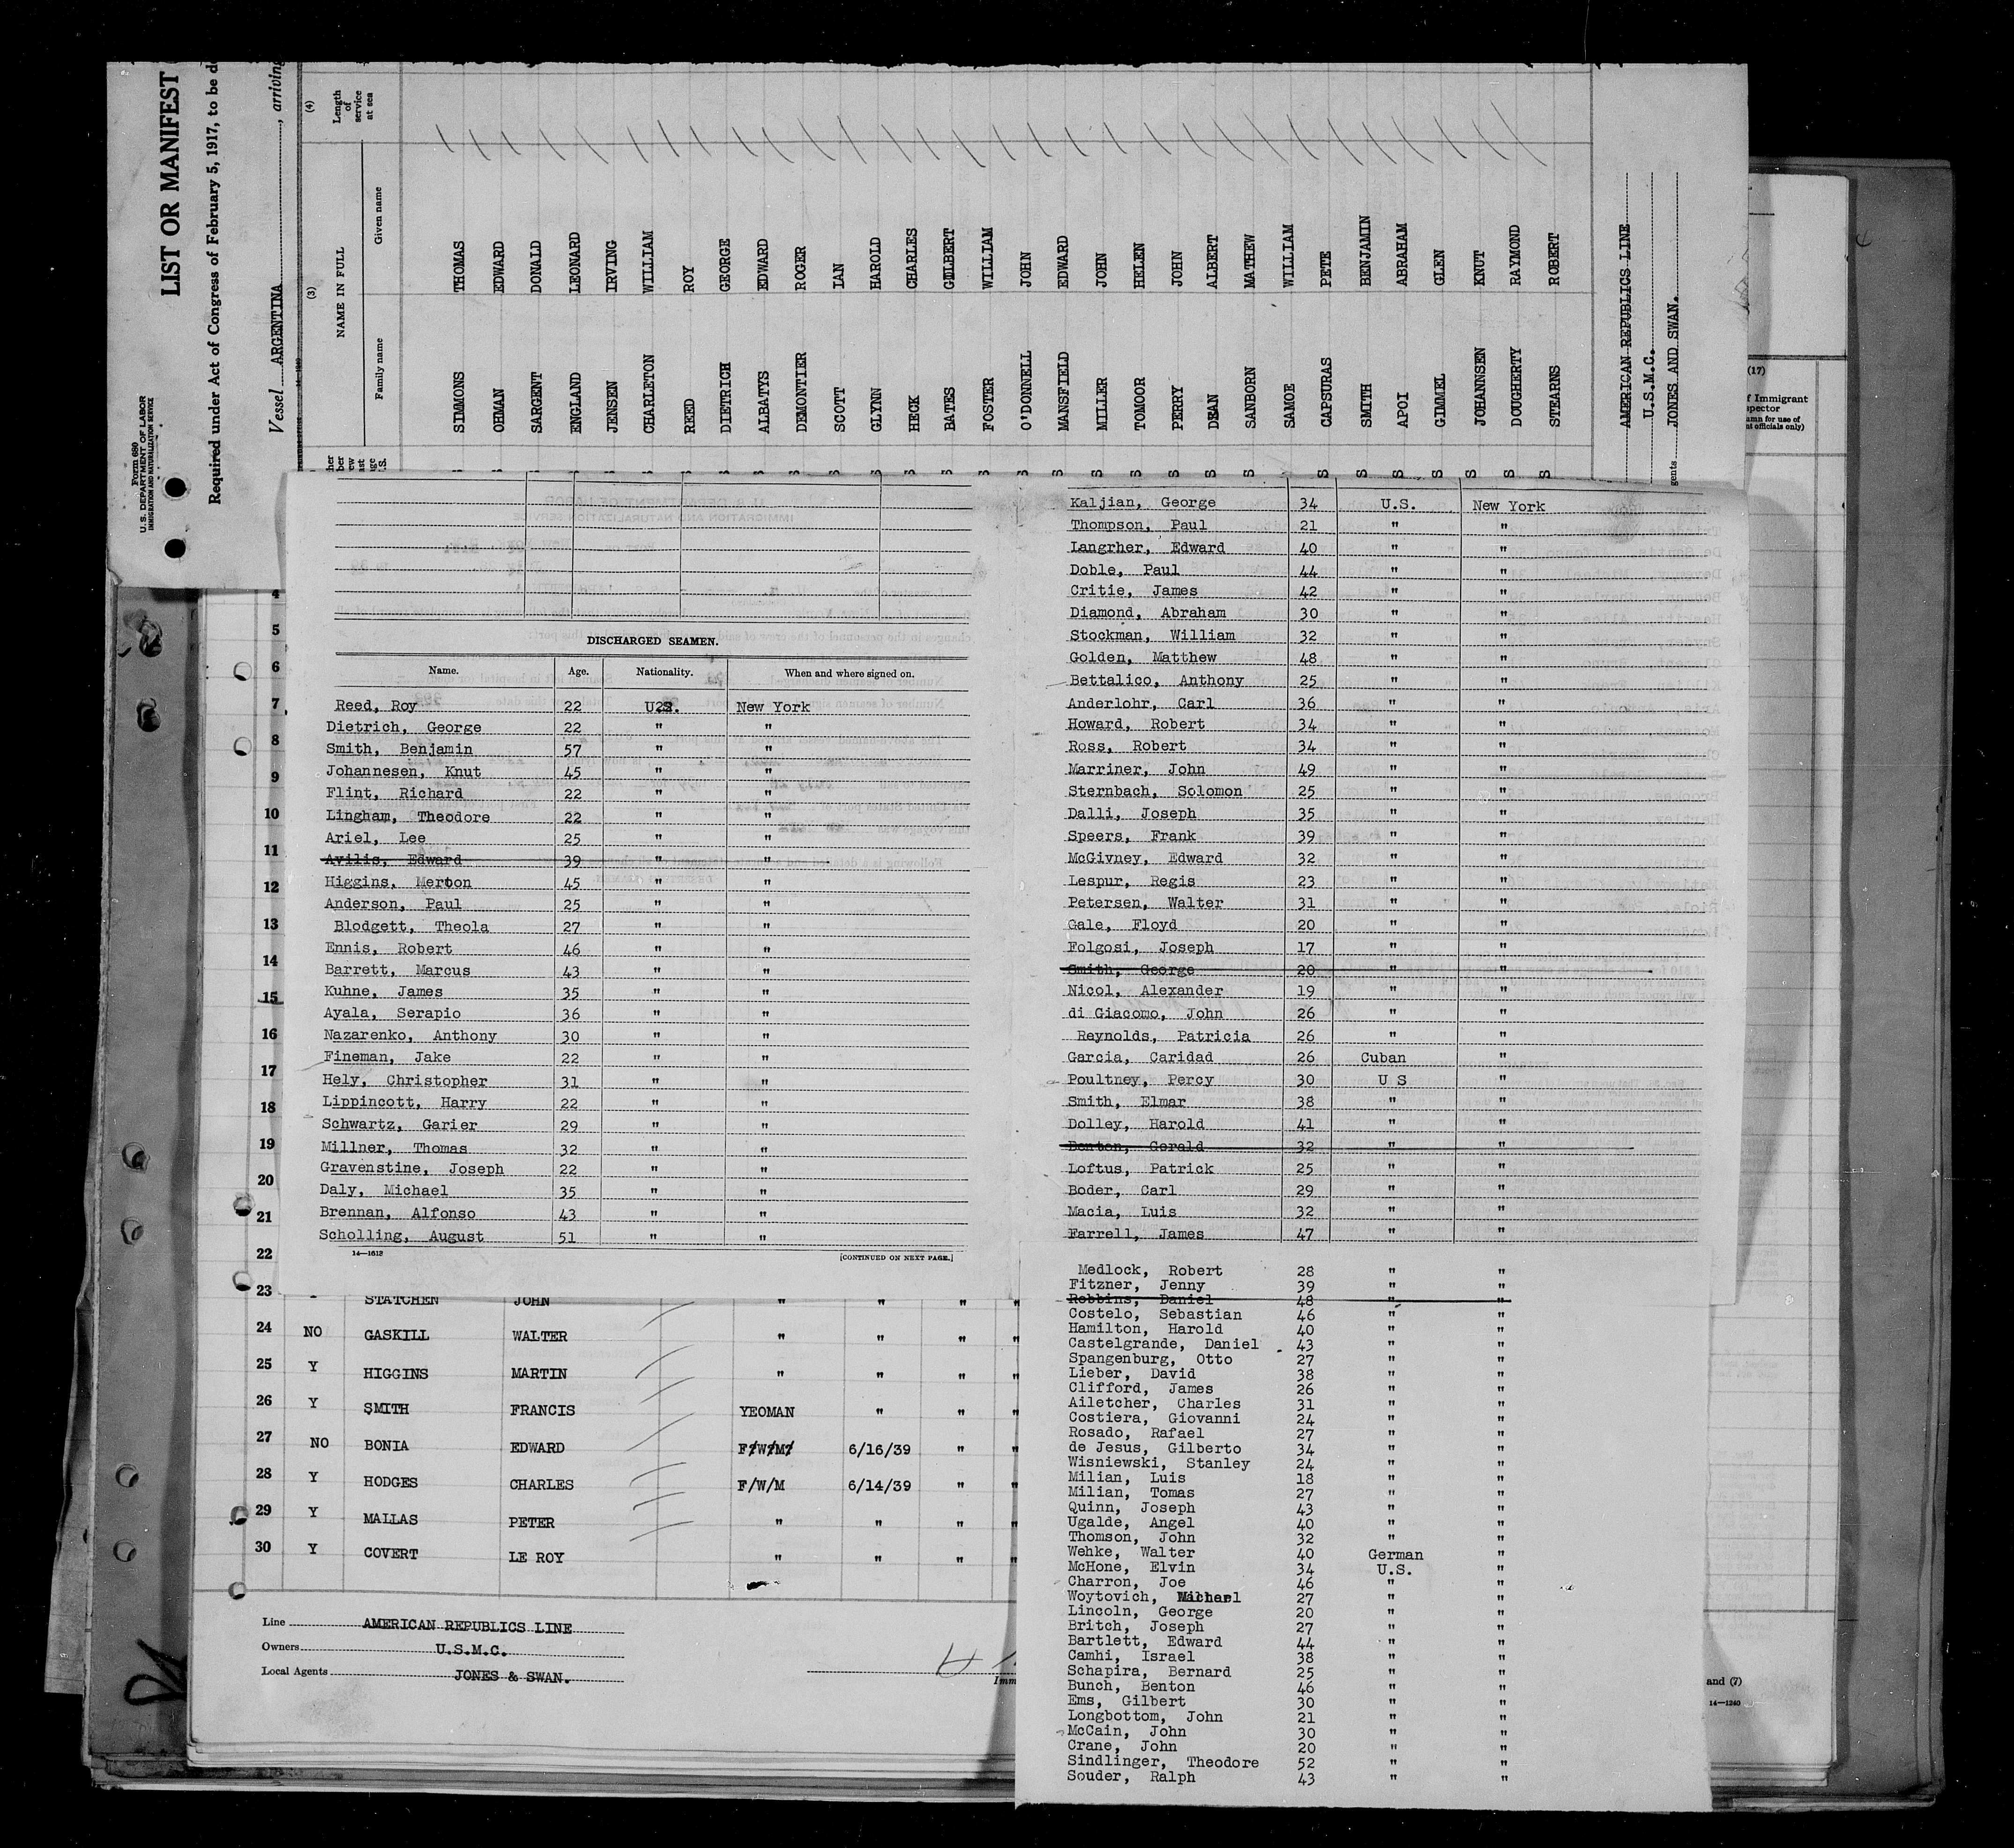 Form 680
U.S. DEPARTMENT OF LABOR
IMMIGRATION AND NATURALIZATION SERVICE
LIST OR MANIFEST
Required under Act of Congress of February 5, 1917, to be de
Vessel ARGENTINA , arriving
(3) (4)
NAME IN FULL Length of service at sea
Family name Given name
SIMMONS THOMAS
OHMAN EDWARD
SARGENT DONALD
ENGLAND LEONARD
JENSEN IRVING
CHARLETON WILLIAM
REED ROY
DIETRICH GEORGE
ALBATYS EDWARD
DEMONTIER ROGER
SCOTT IAN
GLYNN HAROLD
HECK CHARLES
BATES GILBERT
FOSTER WILLIAM
O'DONNELL JOHN
MANSFIELD EDWARD
MILLER JOHN
TOMOOR HELEN
PERRY JOHN
DEAN ALBERT
SANBORN MATHEW
SAMOE WILLIAM
CAPSURAS PETE
SMITH BENJAMIN
APOI ABRAHAM
GIMMEL GLEN
JOHANNSEN KNUT
DOUGHERTY RAYMOND
STEARNS ROBERT
AMERICAN REPUBLICS LINE
U.S.M.C.
gents JONES AND SWAN.
(17)
f Immigrant
spector
umn for use of
nt officials only)
DISCHARGED SEAMEN.
Name. Age. Nationality. When and where signed on.
Reed, Roy 22 U.S. New York
Dietrich, George 22 " "
Smith, Benjamin 57 " "
Johannesen, Knut 45 " "
Flint, Richard 22 " "
Lingham, Theodore 22 " "
Ariel, Lee 25 " "
Avilis, Edward 39 " "
Higgins, Merton 45 " "
Anderson, Paul 25 " "
Blodgett, Theola 27 " "
Ennis, Robert 46 " "
Barrett, Marcus 43 " "
Kuhne, James 35 " "
Ayala, Serapio 36 " "
Nazarenko, Anthony 30 " "
Fineman, Jake 22 " "
Hely, Christopher 31 " "
Lippincott, Harry 22 " "
Schwartz, Garier 29 " "
Millner, Thomas 32 " "
Gravenstine, Joseph 22 " "
Daly, Michael 35 " "
Brennan, Alfonso 43 " "
Scholling, August 51 " "
14—1612 [CONTINUED ON NEXT PAGE.]
Kaljian, George 34 U.S. New York
Thompson, Paul 21 " "
Langrher, Edward 40 " "
Doble, Paul 44 " "
Critie, James 42 " "
Diamond, Abraham 30 " "
Stockman, William 32 " "
Golden, Matthew 48 " "
Bettalico, Anthony 25 " "
Anderlohr, Carl 36 " "
Howard, Robert 34 " "
Ross, Robert 34 " "
Marriner, John 49 " "
Sternbach, Solomon 25 " "
Dalli, Joseph 35 " "
Speers, Frank 39 " "
McGivney, Edward 32 " "
Lespur, Regis 23 " "
Petersen, Walter 31 " "
Gale, Floyd 20 " "
Folgosi, Joseph 17 " "
Smith, George 20 " "
Nicol, Alexander 19 " "
di Giacomo, John 26 " "
Reynolds, Patricia 26 " "
Garcia, Caridad 26 Cuban "
Poultney, Percy 30 U S "
Smith, Elmar 38 " "
Dolley, Harold 41 " "
Benton, Gerald 32 " "
Loftus, Patrick 25 " "
Boder, Carl 29 " "
Macia, Luis 32 " "
Farrell, James 47 " "
Medlock, Robert 28 " "
Fitzner, Jenny 39 " "
Robbins, Daniel 48 " "
Costelo, Sebastian 46 " "
Hamilton, Harold 40 " "
Castelgrande, Daniel 43 " "
Spangenburg, Otto 27 " "
Lieber, David 38 " "
Clifford, James 26 " "
Ailetcher, Charles 31 " "
Costiera, Giovanni 24 " "
Rosado, Rafael 27 " "
de Jesus, Gilberto 34 " "
Wisniewski, Stanley 24 " "
Milian, Luis 18 " "
Milian, Tomas 27 " "
Quinn, Joseph 43 " "
Ugalde, Angel 40 " "
Thomson, John 32 " "
Wehke, Walter 40 German "
McHone, Elvin 34 U.S. "
Charron, Joe 46 " "
Woytovich, Michael 27 " "
Lincoln, George 20 " "
Britch, Joseph 27 " "
Bartlett, Edward 44 " "
Camhi, Israel 38 " "
Schapira, Bernard 25 " "
Bunch, Benton 46 " "
Ems, Gilbert 30 " "
Longbottom, John 21 " "
McCain, John 30 " "
Crane, John 20 " "
Sindlinger, Theodore 52 " "
Souder, Ralph 43 " "
4
5
6
7
8
9
10
11
12
13
14
15
16
17
18
19
20
21
22
23 STATCHEN JOHN " " " "
24 NO GASKILL WALTER " " " "
25 Y HIGGINS MARTIN " " " "
26 Y SMITH FRANCIS YEOMAN " " "
27 NO BONIA EDWARD F/W/M/ 6/16/39 " "
28 Y HODGES CHARLES F/W/M 6/14/39 " "
29 Y MALLAS PETER " " " "
30 Y COVERT LE ROY " " " "
Line AMERICAN REPUBLICS LINE
Owners U.S.M.C.
Local Agents JONES & SWAN.
Imm
and (7)
14—1240